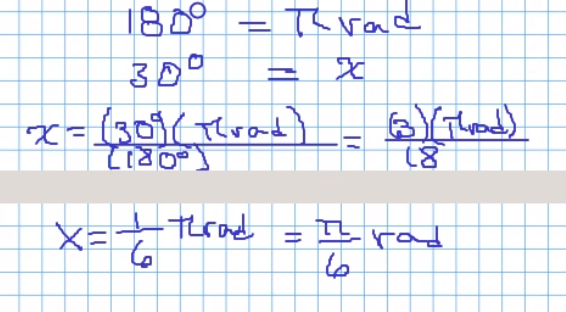 180° = π rad
30° = x
x = (30°)(π rad) / (180°) = (3)(π rad) / 18
x = 1/6 π rad = π/6 rad